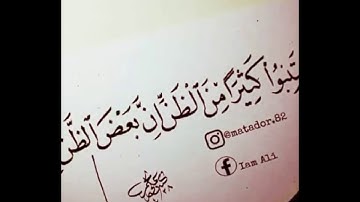 تَنِبُوا۟ كَثِيرًا مِّنَ ٱلظَّنِّ إِنَّ بَعْضَ ٱلظَّنِّ
@matador.82
Iam Ali